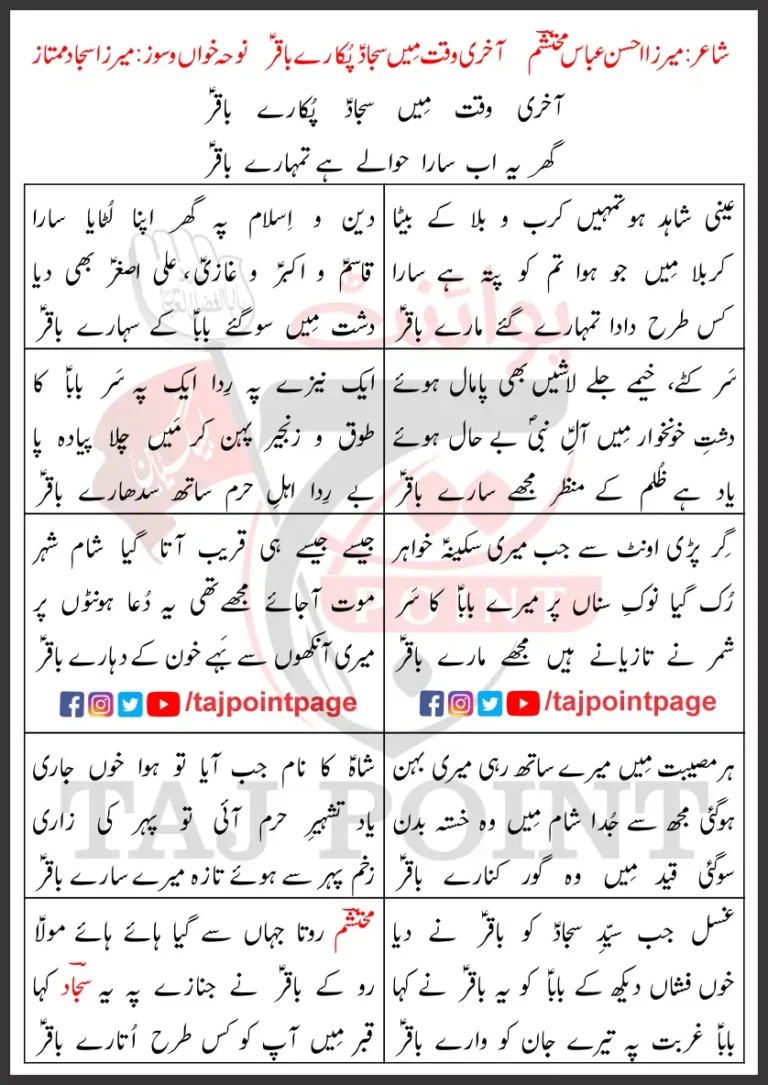 شاعر: میرزا احسن عباس محتشم آخری وقت مِیں سجادؑ پُکارے باقرؑ نوحہ خواں و سوز: میرزا سجاد ممتاز
آخری وقت مِیں سجادؑ پُکارے باقرؑ
گھر یہ اب سارا حوالے ہے تمہارے باقرؑ
عینی شاہد ہو تمہیں کرب و بلا کے بیٹا
کربلا مِیں جو ہوا تم کو پتہ ہے سارا
کس طرح دادا تمہارے گئے مارے باقرؑ
دین و اِسلام پہ گھر اپنا لُٹایا سارا
قاسمؑ و اکبرؑ و غازیؑ، علی اصغرؑ بھی دیا
دشت مِیں سوگئے باباؑ کے سہارے باقرؑ
سَر کٹے، خیمے جلے لاشیں بھی پامال ہوئے
دشتِ خونخوار مِیں آلِ نبیؐ بے حال ہوئے
یاد ہے ظُلم کے منظر مجھے سارے باقرؑ
ایک نیزے پہ رِدا ایک پہ سَر باباؑ کا
طوق و زنجیر پہن کر مَیں چلا پیادہ پا
بے رِدا اہلِ حرم ساتھ سدھارے باقرؑ
گِر پڑی اونٹ سے جب میری سکینہؑ خواہر
رُک گیا نوکِ سناں پر میرے باباؑ کا سَر
شمر نے تازیانے ہیں مجھے مارے باقرؑ
/tajpointpage
جیسے جیسے ہی قریب آتا گیا شام شہر
موت آجائے مجھے تھی یہ دُعا ہونٹوں پر
میری آنکھوں سے بَہے خون کے دہارے باقرؑ
/tajpointpage
ہر مصیبت مِیں میرے ساتھ رہی میری بہن
ہوگئی مجھ سے جُدا شام مِیں وہ خستہ بدن
سوگئی قید مِیں وہ گور کنارے باقرؑ
شاہؑ کا نام جب آیا تو ہوا خوں جاری
یاد تشہیرِ حرم آئی تو پھر کی زاری
زخم پھر سے ہوئے تازہ میرے سارے باقرؑ
غسل جب سیّدِ سجادؑ کو باقرؑ نے دیا
خوں فشاں دیکھ کے باباؑ کو یہ باقرؑ نے کہا
باباؑ غربت پہ تیرے جان کو وارے باقرؑ
محتشم روتا جہاں سے گیا ہائے ہائے مولاؑ
رو کے باقرؑ نے جنازے پہ یہ سجاد کہا
قبر مِیں آپ کو کس طرح اُتارے باقرؑ
پوائنٹ
POINT
TAJ POINT